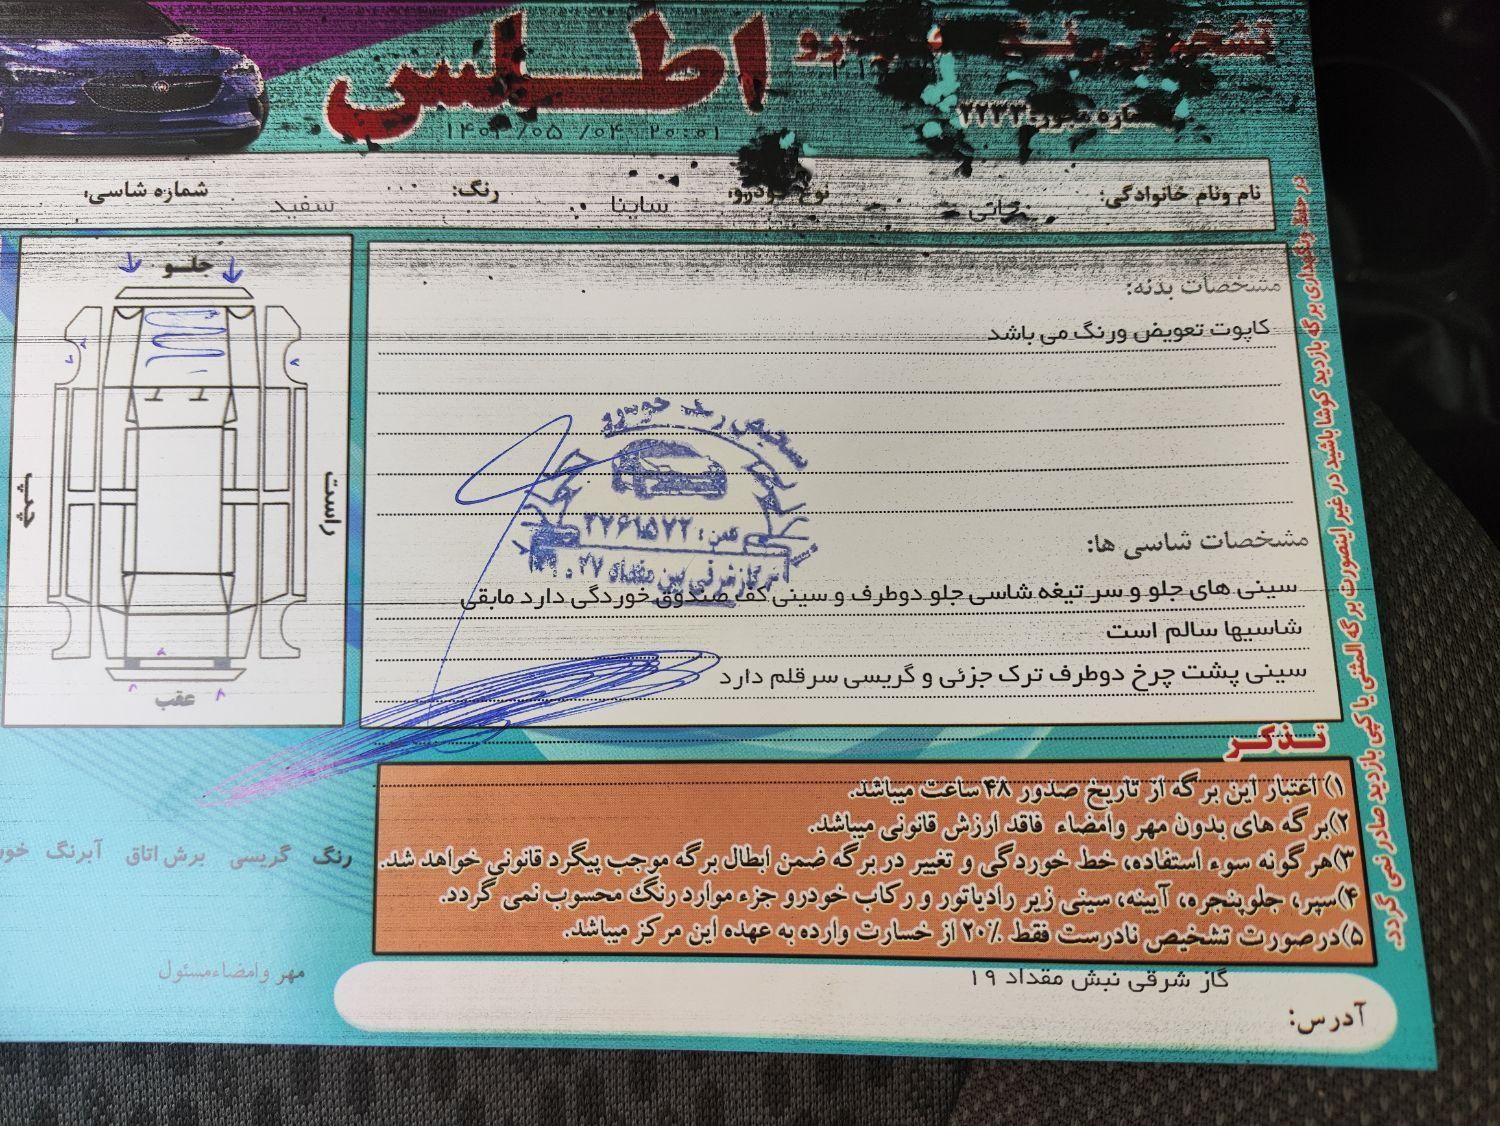 اطلس
۲۰:۰۱ ۱۴۰۲/۰۵/۰۴
نام ونام خانوادگی:
نوع خودرو: ساینا
رنگ: سفید
شماره شاسی:
جلو
راست
چپ
عقب
مشخصات بدنه:
کاپوت تعویض ورنگ می باشد
مشخصات شاسی ها:
سینی های جلو و سر تیغه شاسی جلو دوطرف و سینی کف صندوق خوردگی دارد مابقی
شاسیها سالم است
سینی پشت چرخ دوطرف ترک جزئی و گریسی سرقلم دارد
تشخیص رنگ خودرو
تلفن: ۲۷۶۱۵۷۲
در حفظ ونگهداری برگه بازدید کوشا باشید در غیر اینصورت برگه المثنی یا کپی بازدید صادر نمی گردد.
تذکر
۱) اعتبار این برگه از تاریخ صدور ۴۸ ساعت میباشد.
۲)برگه های بدون مهر وامضاء فاقد ارزش قانونی میباشد.
۳)هرگونه سوء استفاده، خط خوردگی و تغییر در برگه ضمن ابطال برگه موجب پیگرد قانونی خواهد شد.
۴)سپر، جلوپنجره، آیینه، سینی زیر رادیاتور و رکاب خودرو جزء موارد رنگ محسوب نمی گردد.
۵)درصورت تشخیص نادرست فقط ۲۰٪ از خسارت وارده به عهده این مرکز میباشد.
رنگ گریسی برش اتاق آبرنگ
مهر وامضاءمسئول
آدرس: گاز شرقی نبش مقداد ۱۹